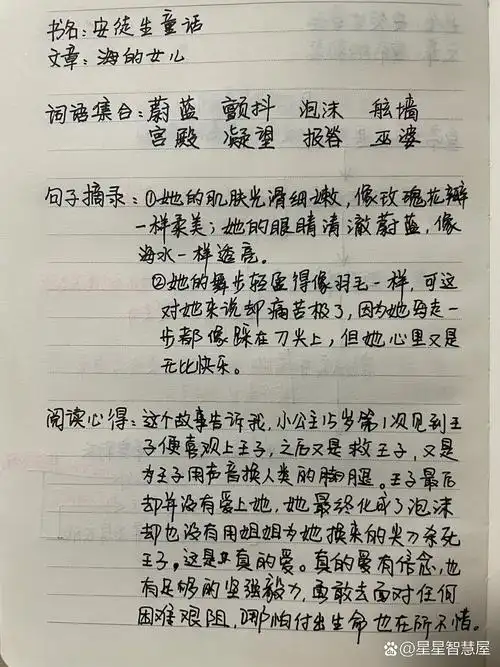 书名：安徒生童话
文章：海的女儿
词语集合：蔚蓝 颤抖 泡沫 舷墙
宫殿 凝望 报答 巫婆
句子摘录：①她的肌肤光滑细嫩，像玫瑰花瓣
一样柔美；她的眼睛清澈蔚蓝，像
海水一样透亮。
②她的舞步轻盈得像羽毛一样，可这
对她来说却痛苦极了，因为她每走一
步都像踩在刀尖上，但她心里又是
无比快乐。
阅读心得：这个故事告诉我，小公主15岁第1次见到王
子便喜欢上王子，之后又是救王子，又是
为王子用声音换人类的腿。王子最后
却并没有爱上她，她最终化成了泡沫
却也没有用姐姐为她换来的尖刀杀死
王子。这是真的爱。真的爱有信念，也
有足够的坚强毅力，勇敢去面对任何
困难艰阻，哪怕付出生命也在所不惜。
@星星智慧屋